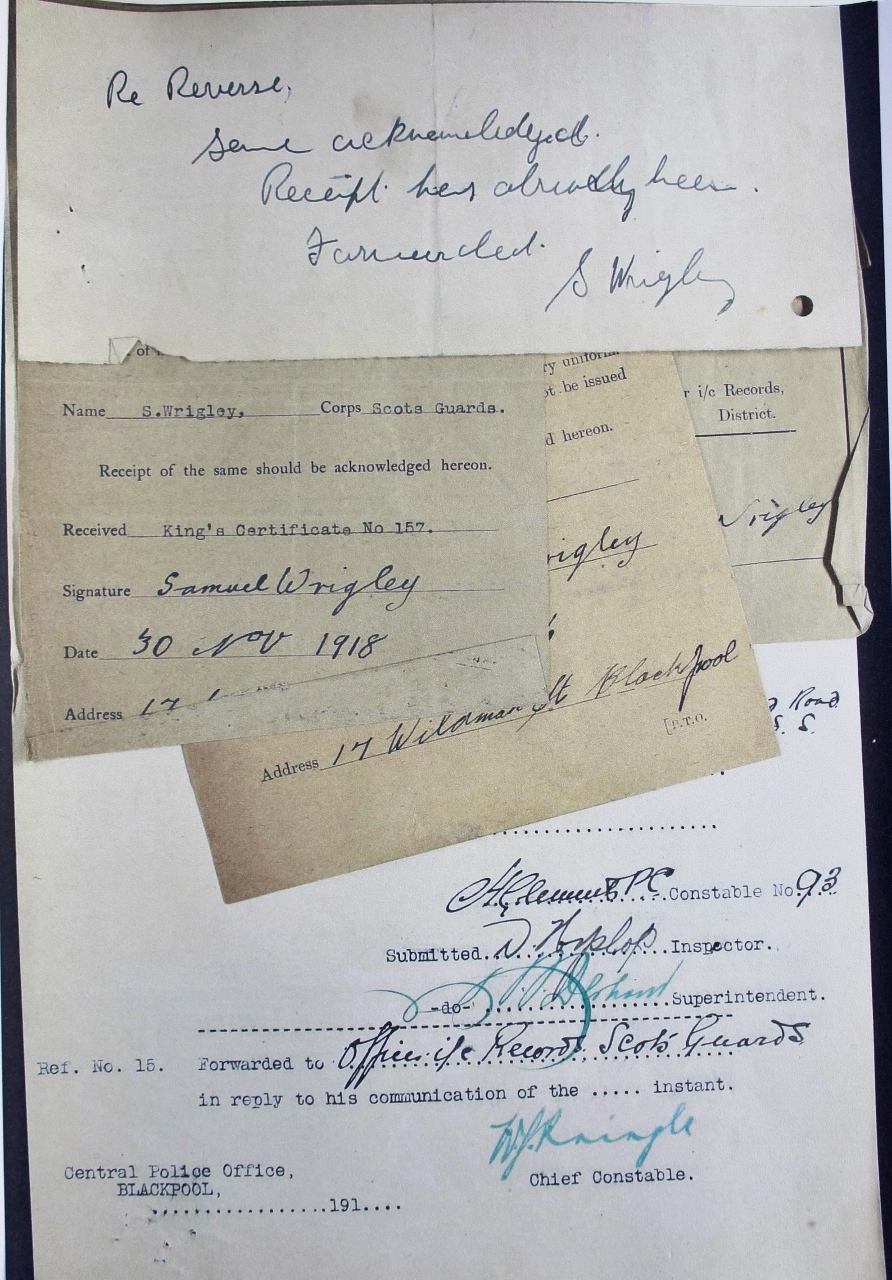 Re Reverse,
Same acknowledged.
Receipt has already been.
Forwarded.
S Wrigley
of
Name S.Wrigley, Corps Scots Guards.
Receipt of the same should be acknowledged hereon.
Received King's Certificate No 157.
Signature Samuel Wrigley
Date 30 Nov 1918
Address 17
ry uniform
ot be issued
d hereon.
rigley
Address 17 Wildman St Blackpool
[P.T.O.
r i/c Records,
District.
Wrigley
Road
S. S.
H Clement PC Constable No. 93
Submitted Inspector.
-do- Superintendent.
Ref. No. 15. Forwarded to Officer i/c Records Scots Guards
in reply to his communication of the ..... instant.
Chief Constable.
Central Police Office,
BLACKPOOL,
.................191....